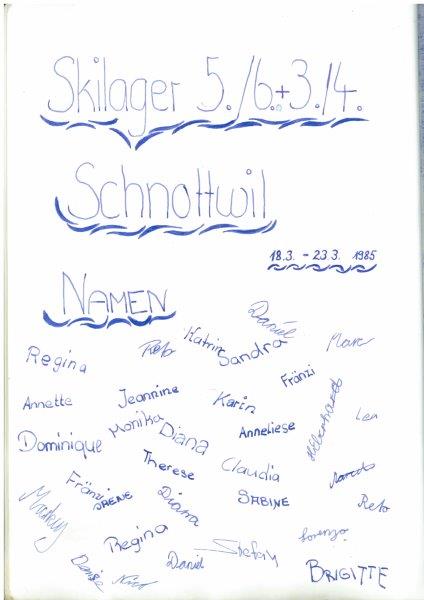 Skilager 5./6.+3./4.
Schnottwil
18.3. - 23.3. 1985
NAMEN
Daniel
Regina Reto Katrin Sandra Marc
Fränzi
Annette Jeannine Karin Lea
Dominique Monika Diana Anneliese
Therese Claudia
Fränzi IRENE Diana SABINE Reto
Markus
Regina Stefan Lorenzo
Denise Nicol Daniel BRIGITTE